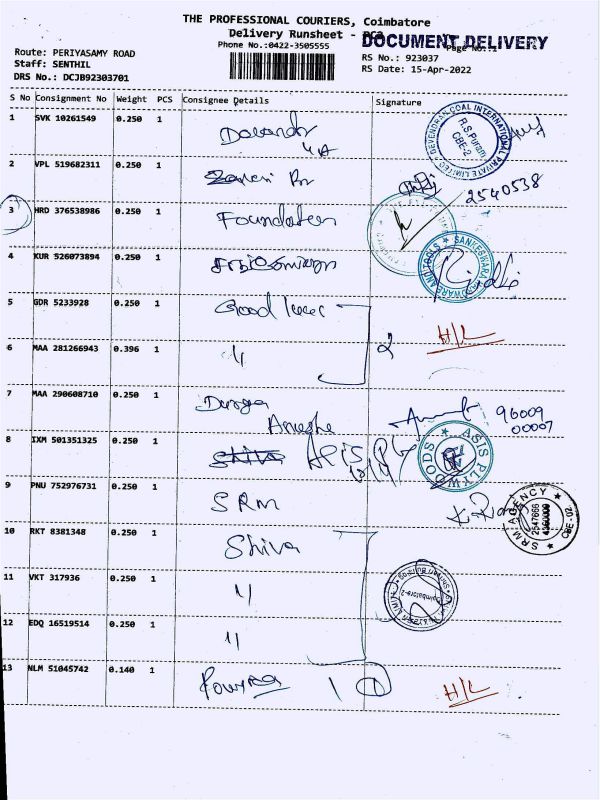 THE PROFESSIONAL COURIERS, Coimbatore
Delivery Runsheet -
DOCUMENT DELIVERY
Phone No.:0422-3505555
Page No.:1
Route: PERIYASAMY ROAD
Staff: SENTHIL
DRS No.: DCJB92303701
RS No.: 923037
RS Date: 15-Apr-2022
S No Consignment No Weight PCS Consignee Details Signature
1 SVK 10261549 0.250 1
DEVENDRAN COAL INTERNATIONAL PRIVATE LIMITED
R.S.Puram
CBE-2
2 VPL 519682311 0.250 1
2540538
3 HRD 376538986 0.250 1 Foundation
4 KUR 526073894 0.250 1
SANKESWARA HARDWARE AND TOOLS
5 GDR 5233928 0.250 1 Good
H/L
6 MAA 281266943 0.396 1 "
2
7 MAA 290608710 0.250 1 Durga
96009
00007
8 IXM 501351325 0.250 1 Shiva
ASIS PLYWOODS
9 PNU 752976731 0.250 1 SRM
SRM AGENCY
2547666
4360009
CBE-02
10 RKT 8381348 0.250 1 Shiva
11 VKT 317936 0.250 1 "
Coimbatore-2
12 EDQ 16519514 0.250 1 "
13 NLM 51045742 0.140 1 1 1
H/L